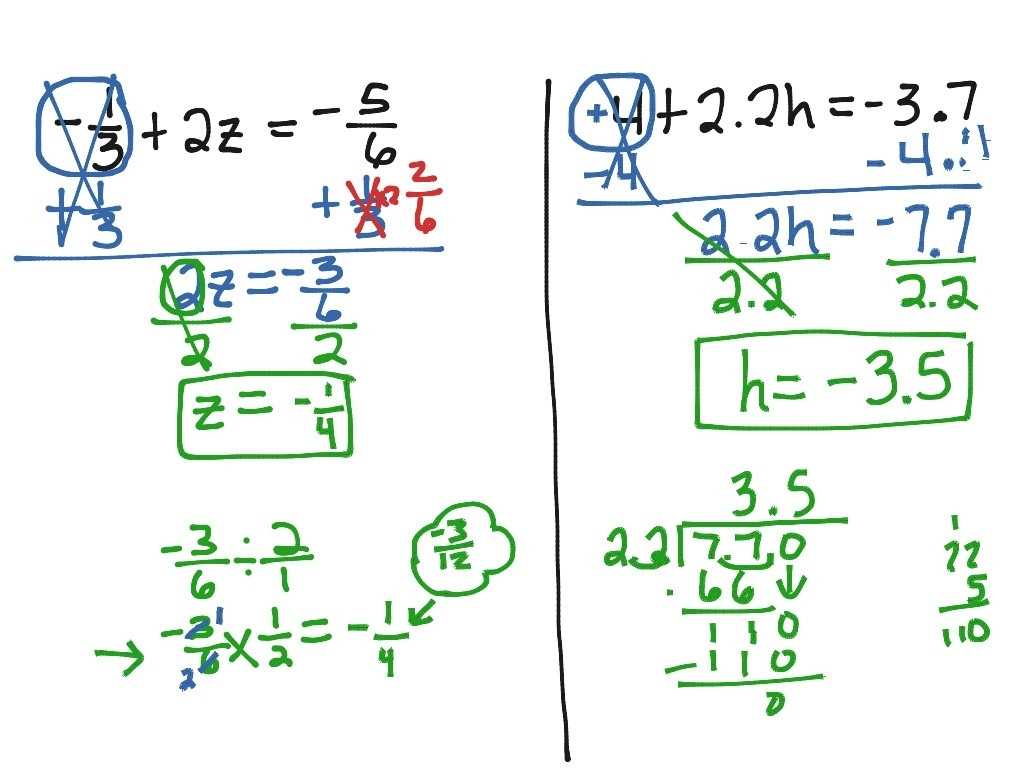 -1/3 + 2z = -5/6
+ 1/3 + 1/3 ×2 2/6
2z = -3/6
2 2
z = -1/4
-3/6 ÷ 2/1
-3/12
→ -3/6 1 2 × 1/2 = -1/4
+4 + 2.2h = -3.7
-4 -4.
2.2h = -7.7
2.2 2.2
h = -3.5
3.5
2.2 7.7.0
. 6 6 ↓
1 1 0
- 1 1 0
0
1
22
5
110